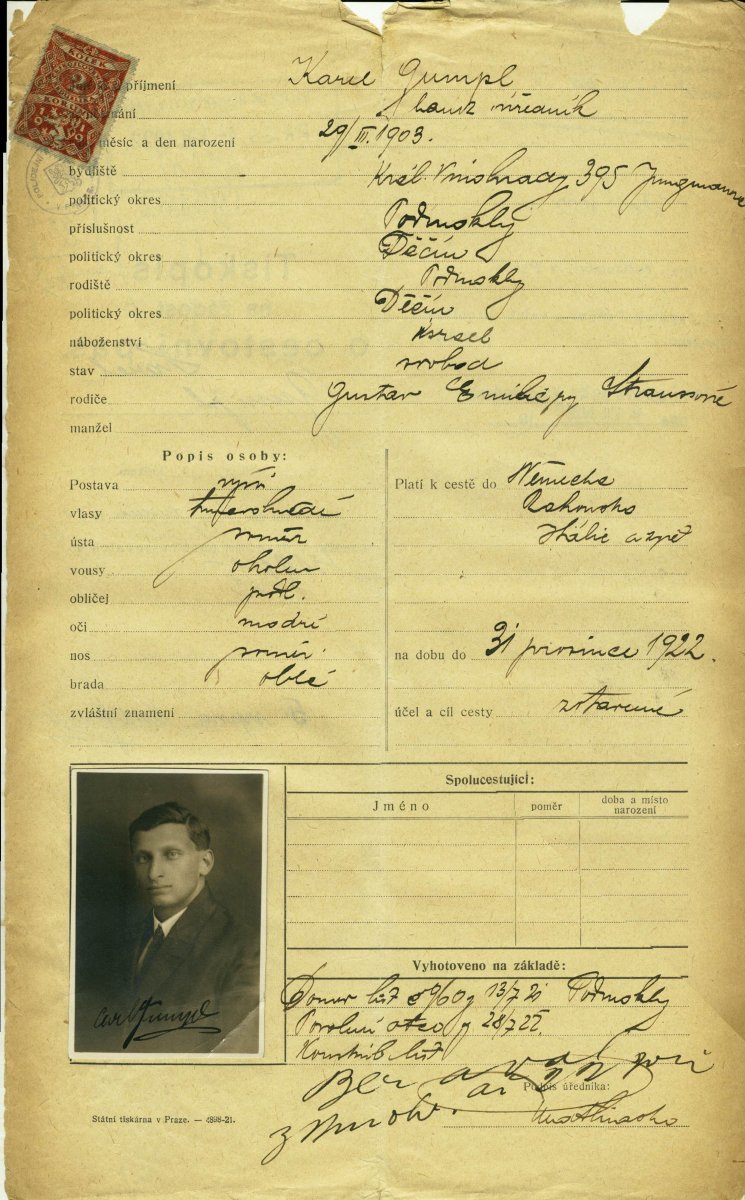 KOLEK
příjmení Karel Gumpl
úředník
měsíc a den narození 29/III. 1903.
bydliště Král. Vinohrady 395 Jungmannova
politický okres
příslušnost Podmokly
politický okres Děčín
rodiště Podmokly
politický okres Děčín
náboženství israel
stav svobod
rodiče Gustav Emilie Straussové
manžel
Popis osoby:
Postava vyšší
vlasy
ústa souměr
vousy oholen
obličej podl.
oči modré
nos souměr.
brada oblá
zvláštní znamení
Platí k cestě do Německa
Rakouska
Itálie a zpět
na dobu do 31 prosince 1922.
účel a cíl cesty
Spolucestující:
Jméno poměr doba a místo narození
Vyhotoveno na základě:
Domov. list 13/7 21 Podmokly
Povolení otce z 28/7 22.
list
Podpis úředníka:
Státní tiskárna v Praze. — 4898-21.